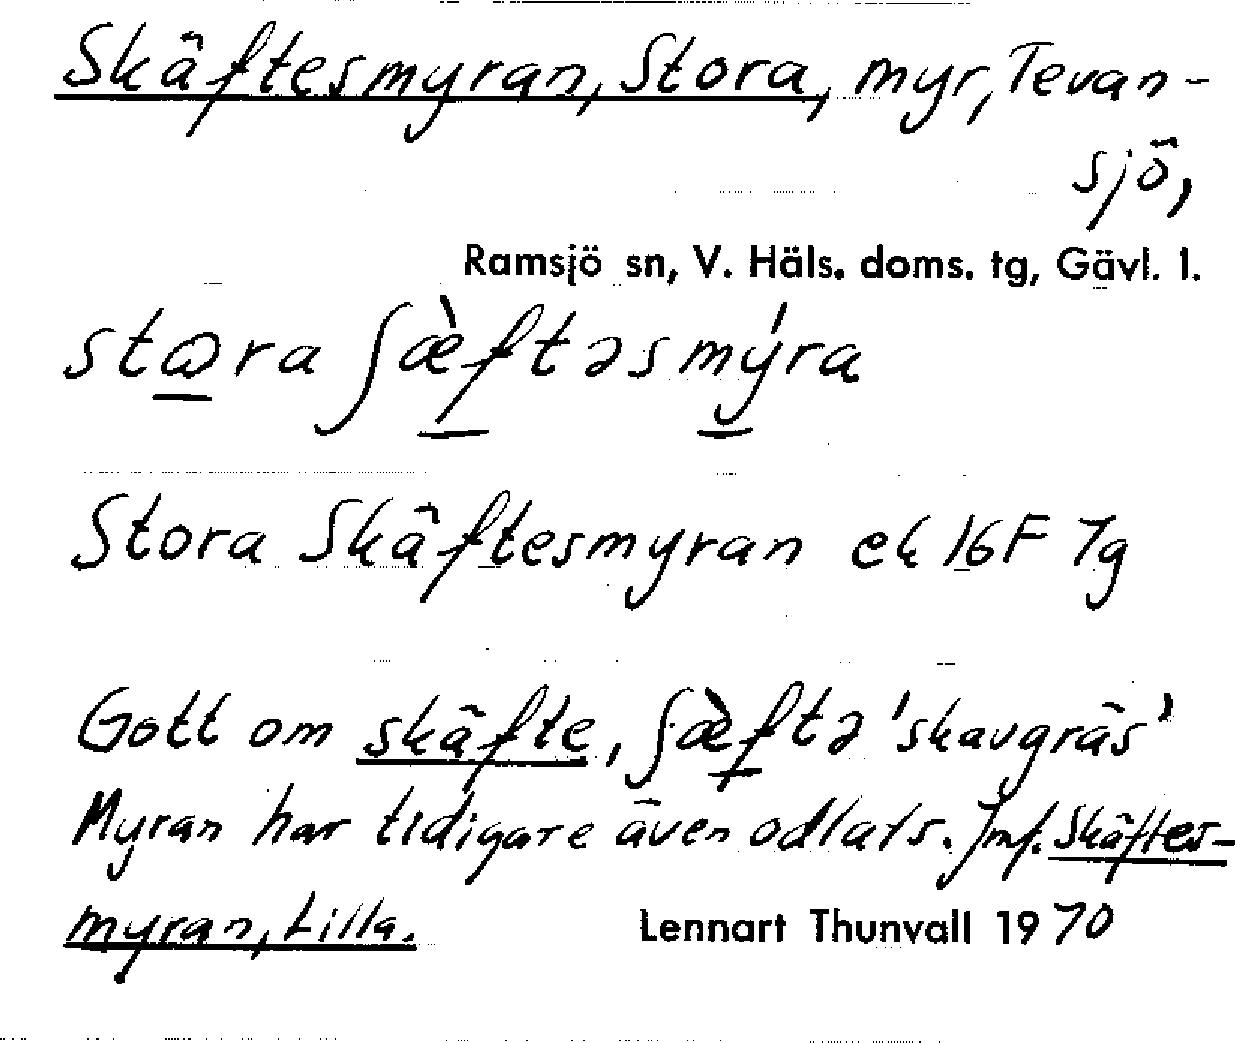 Skäftesmyran, Stora, myr, Tevan-
sjö,
Ramsjö sn, V. Häls. doms. tg, Gävl. l.
stɷra ʃæ̀ftəsmýra
Stora Skäftesmyran ek 16F 7g
Gott om skäfte, ʃæ̀ftə 'skavgräs'
Myran har tidigare även odlats. Jmf. Skäftes-
myran, Lilla.
Lennart Thunvall 1970